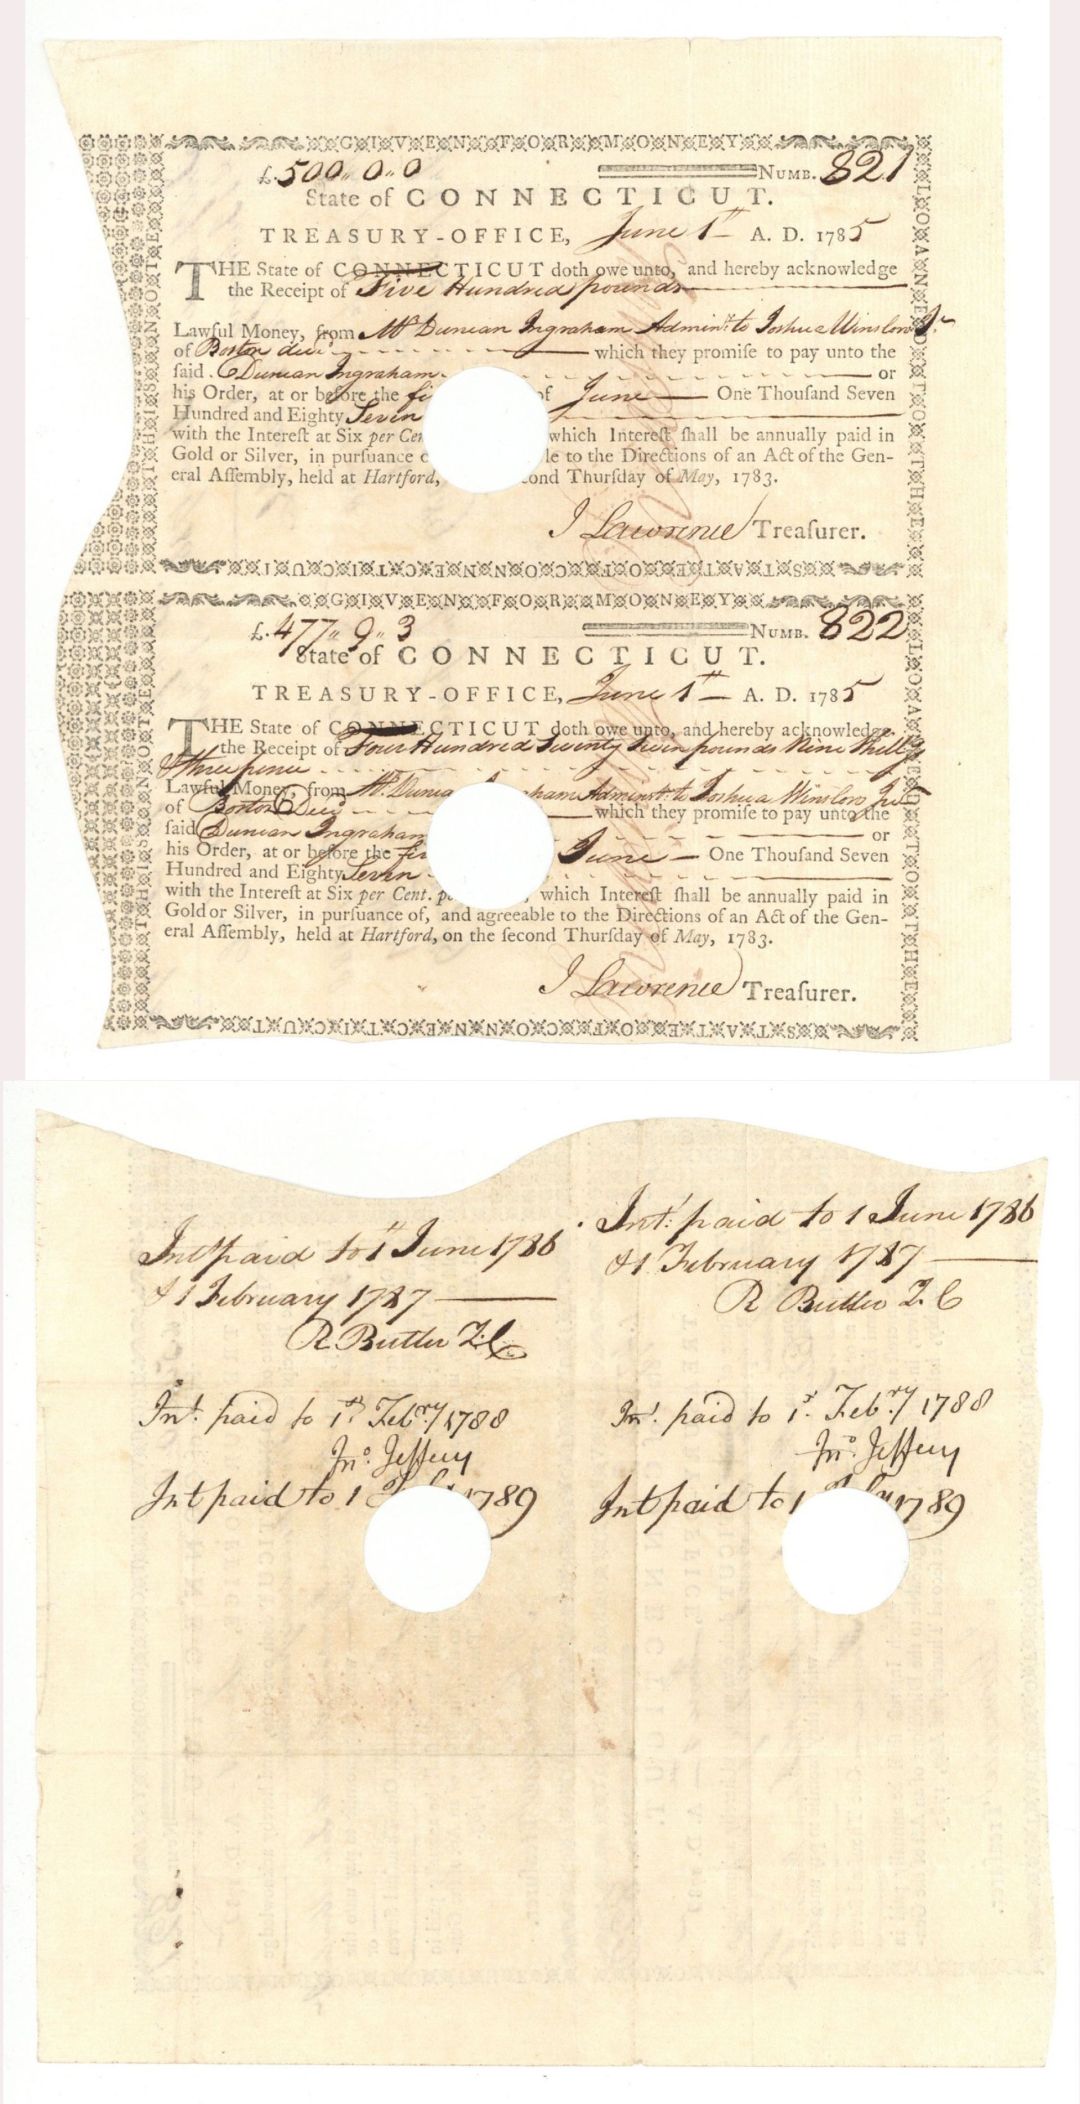 GIVEN FOR MONEY
£.500.. 0.. 0 NUMB. 821
State of CONNECTICUT.
TREASURY-OFFICE, June 1st A. D. 1785
THE State of CONNECTICUT doth owe unto, and hereby acknowledge
the Receipt of Five Hundred pounds
Lawful Money, from Mr Duncan Ingraham Adminr. to Joshua Winslow Jr
of Boston decd which they promise to pay unto the
said Duncan Ingraham or
his Order, at or before the fi of June One Thousand Seven
Hundred and Eighty Seven
with the Interest at Six per Cen which Interest shall be annually paid in
Gold or Silver, in pursuance le to the Directions of an Act of the Gen-
eral Assembly, held at Hartford, ond Thursday of May, 1783.
J Lawrence Treasurer.
STATE OF CONNECTICUT
THIS NOTE
LOANED TO THE
GIVEN FOR MONEY
£.477.. 9.. 3 NUMB. 822
State of CONNECTICUT.
TREASURY-OFFICE, June 1st A. D. 1785
THE State of CONNECTICUT doth owe unto, and hereby acknowledge
the Receipt of Four Hundred Seventy Seven pounds Nine Shillgs
& three pence
Lawful Money, from Mr. Dunca ham Adminstr. to Joshua Winslow Junr
of Boston Decd which they promise to pay unto the
said Duncan Ingraham or
his Order, at or before the fir June One Thousand Seven
Hundred and Eighty Seven
with the Interest at Six per Cent. p , which Interest shall be annually paid in
Gold or Silver, in pursuance of, and agreeable to the Directions of an Act of the Gen-
eral Assembly, held at Hartford, on the second Thursday of May, 1783.
J Lawrence Treasurer.
STATE OF CONNECTICUT
THIS NOTE
LOANED TO THE
Intt paid to 1st June 1786
& 1 February 1787
R Butler
Int. paid to 1st Febry 1788
Jno. Jeffery
Int paid to 1 1789
Int. paid to 1 June 1786
& 1 February 1787
R Butler
Int. paid to 1st. Febry 1788
Jno. Jeffery
Int paid to 1 1789